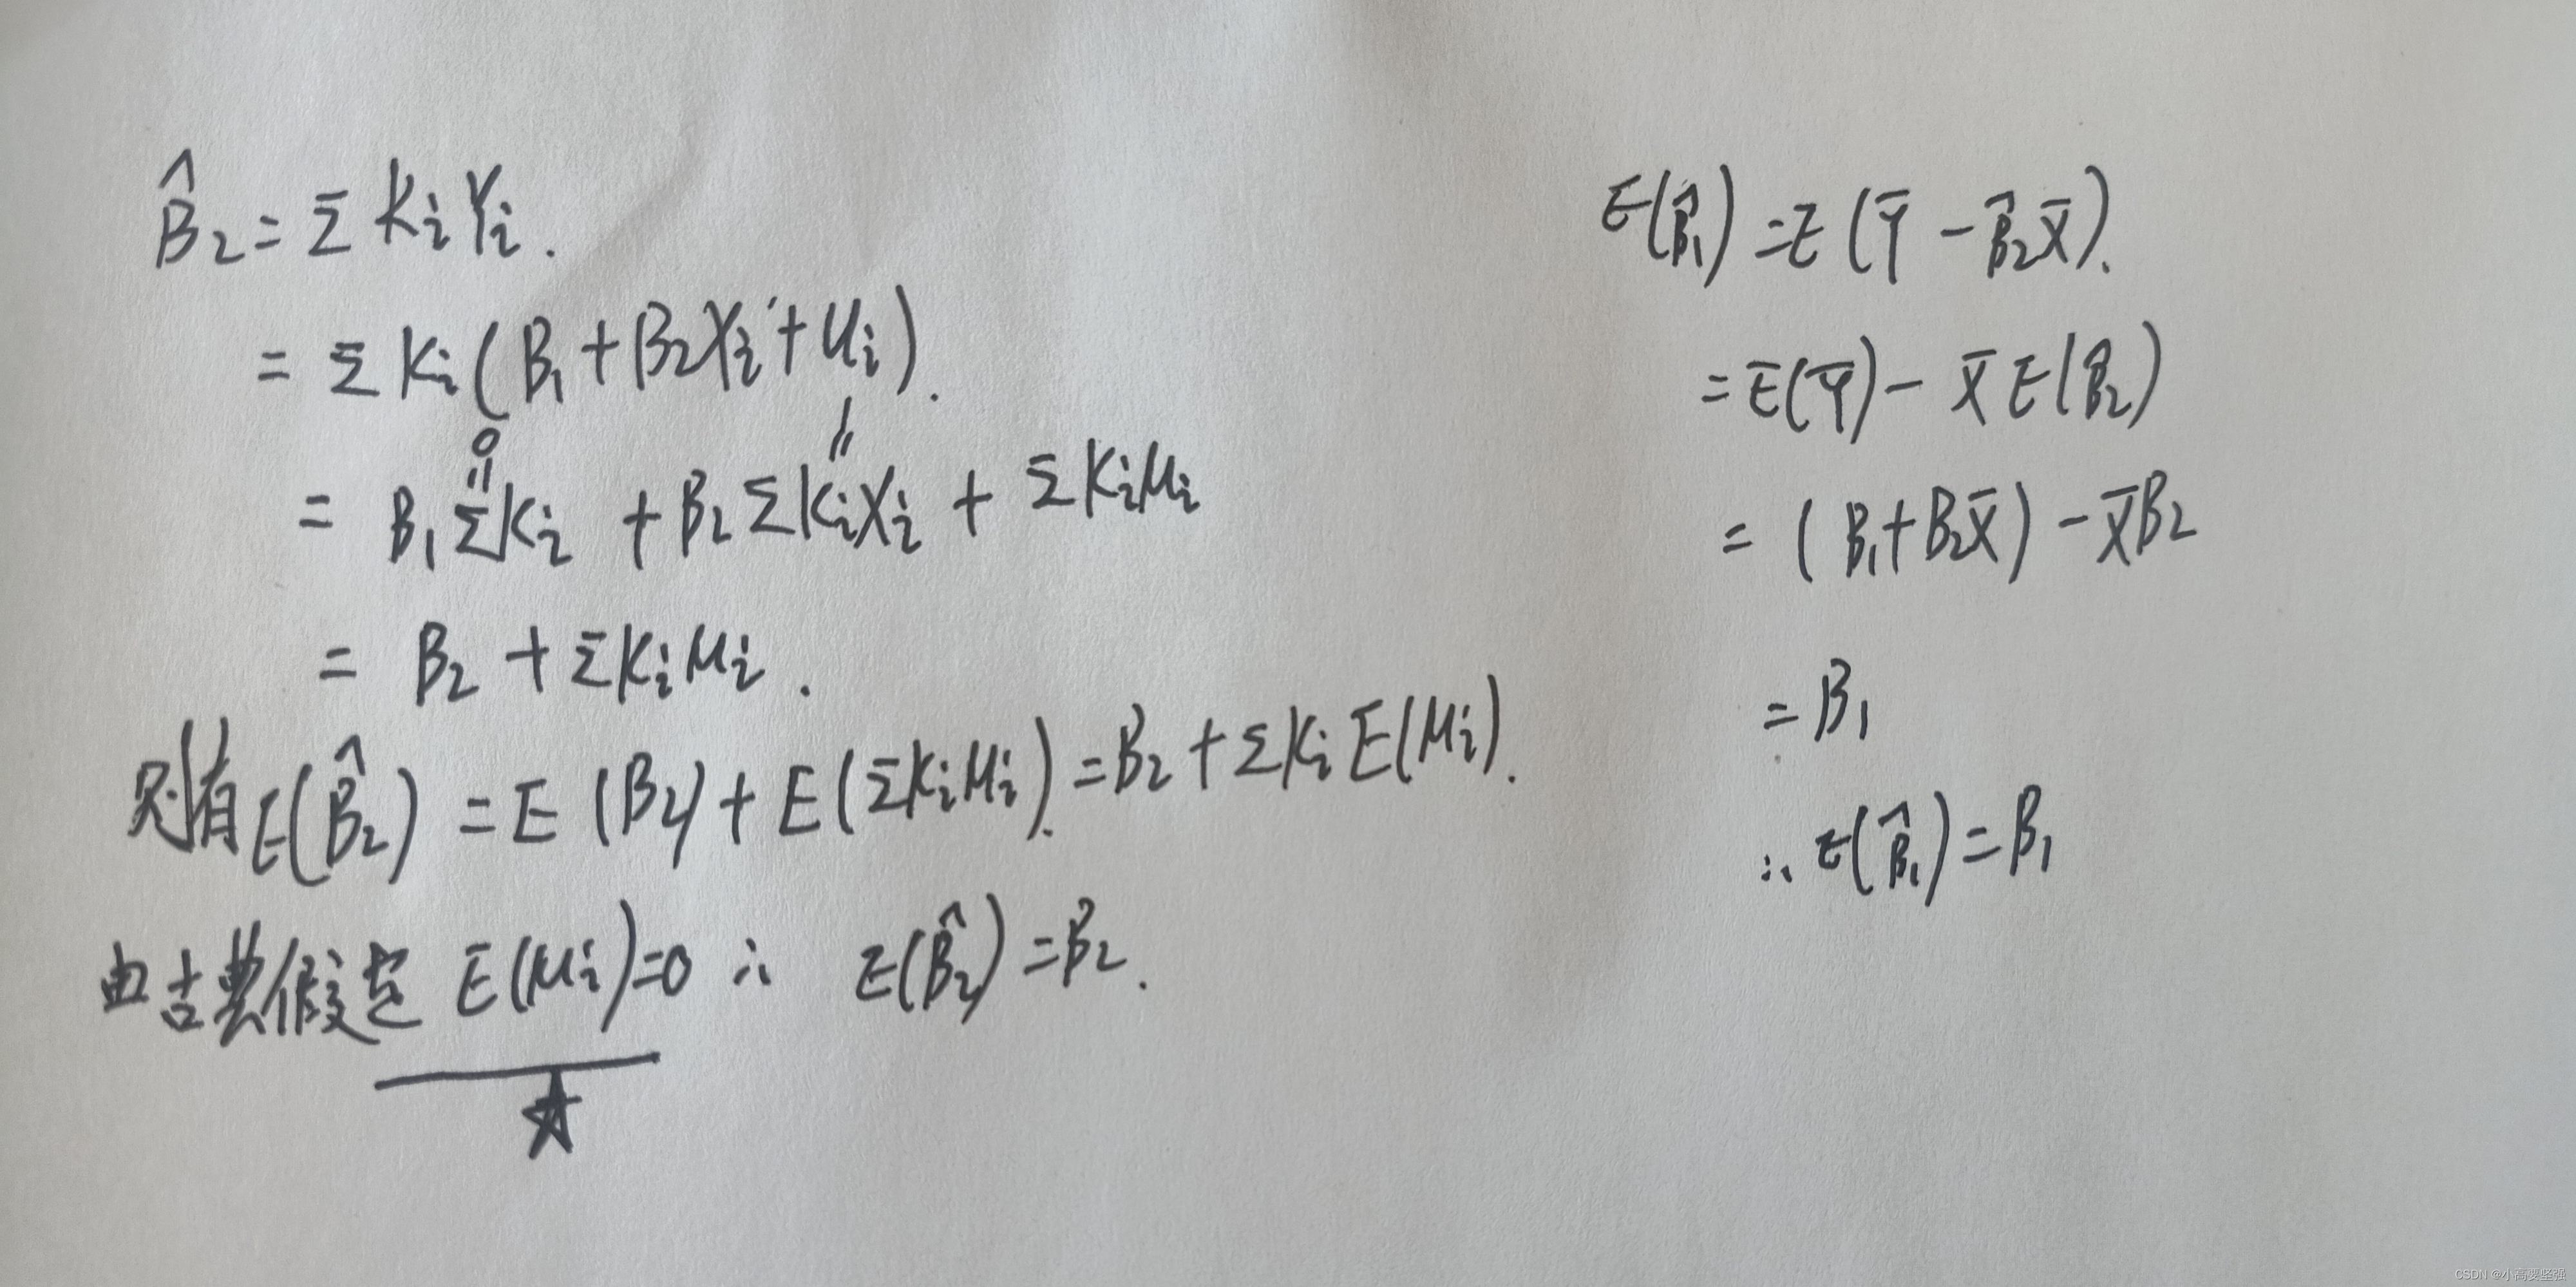 B̂₂ = Σ KᵢYᵢ.
= Σ Kᵢ(B₁ + B₂Xᵢ + Uᵢ).
0 1
|| ||
= B₁ΣKᵢ + B₂ΣKᵢXᵢ + ΣKᵢμᵢ
= B₂ + ΣKᵢμᵢ.
则有 E(B̂₂) = E(B₂) + E(ΣKᵢμᵢ). = B₂ + ΣKᵢE(μᵢ).
由古典假定 E(μᵢ)=0 ∴ E(B̂₂) = B₂.
E(B̂₁) = E(Ȳ - B̂₂X̄).
= E(Ȳ) - X̄E(B̂₂)
= (B₁+B₂X̄) - X̄B₂
= B₁
∴ E(B̂₁) = B₁
CSDN @小高要坚强